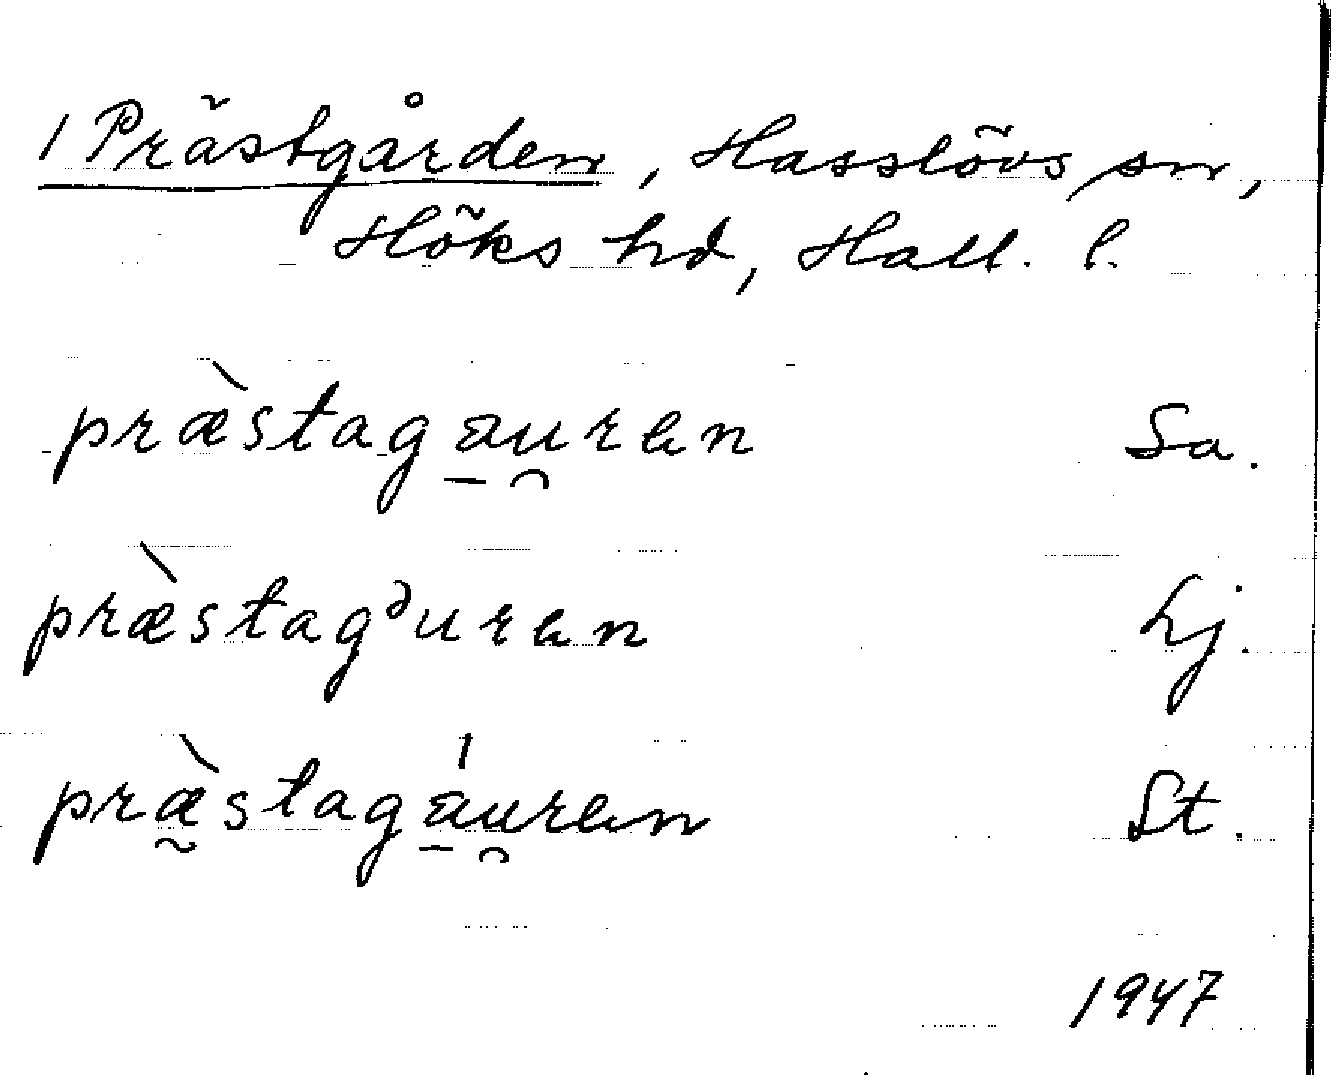 1 Prästgården, Hasslövs sn,
Höks hd, Hall. l.
præ̀staga̱u̯ren Sa.
præ̀stagᵊuren Lj.
præ̰̀stagá̱u̯ren St.
1947